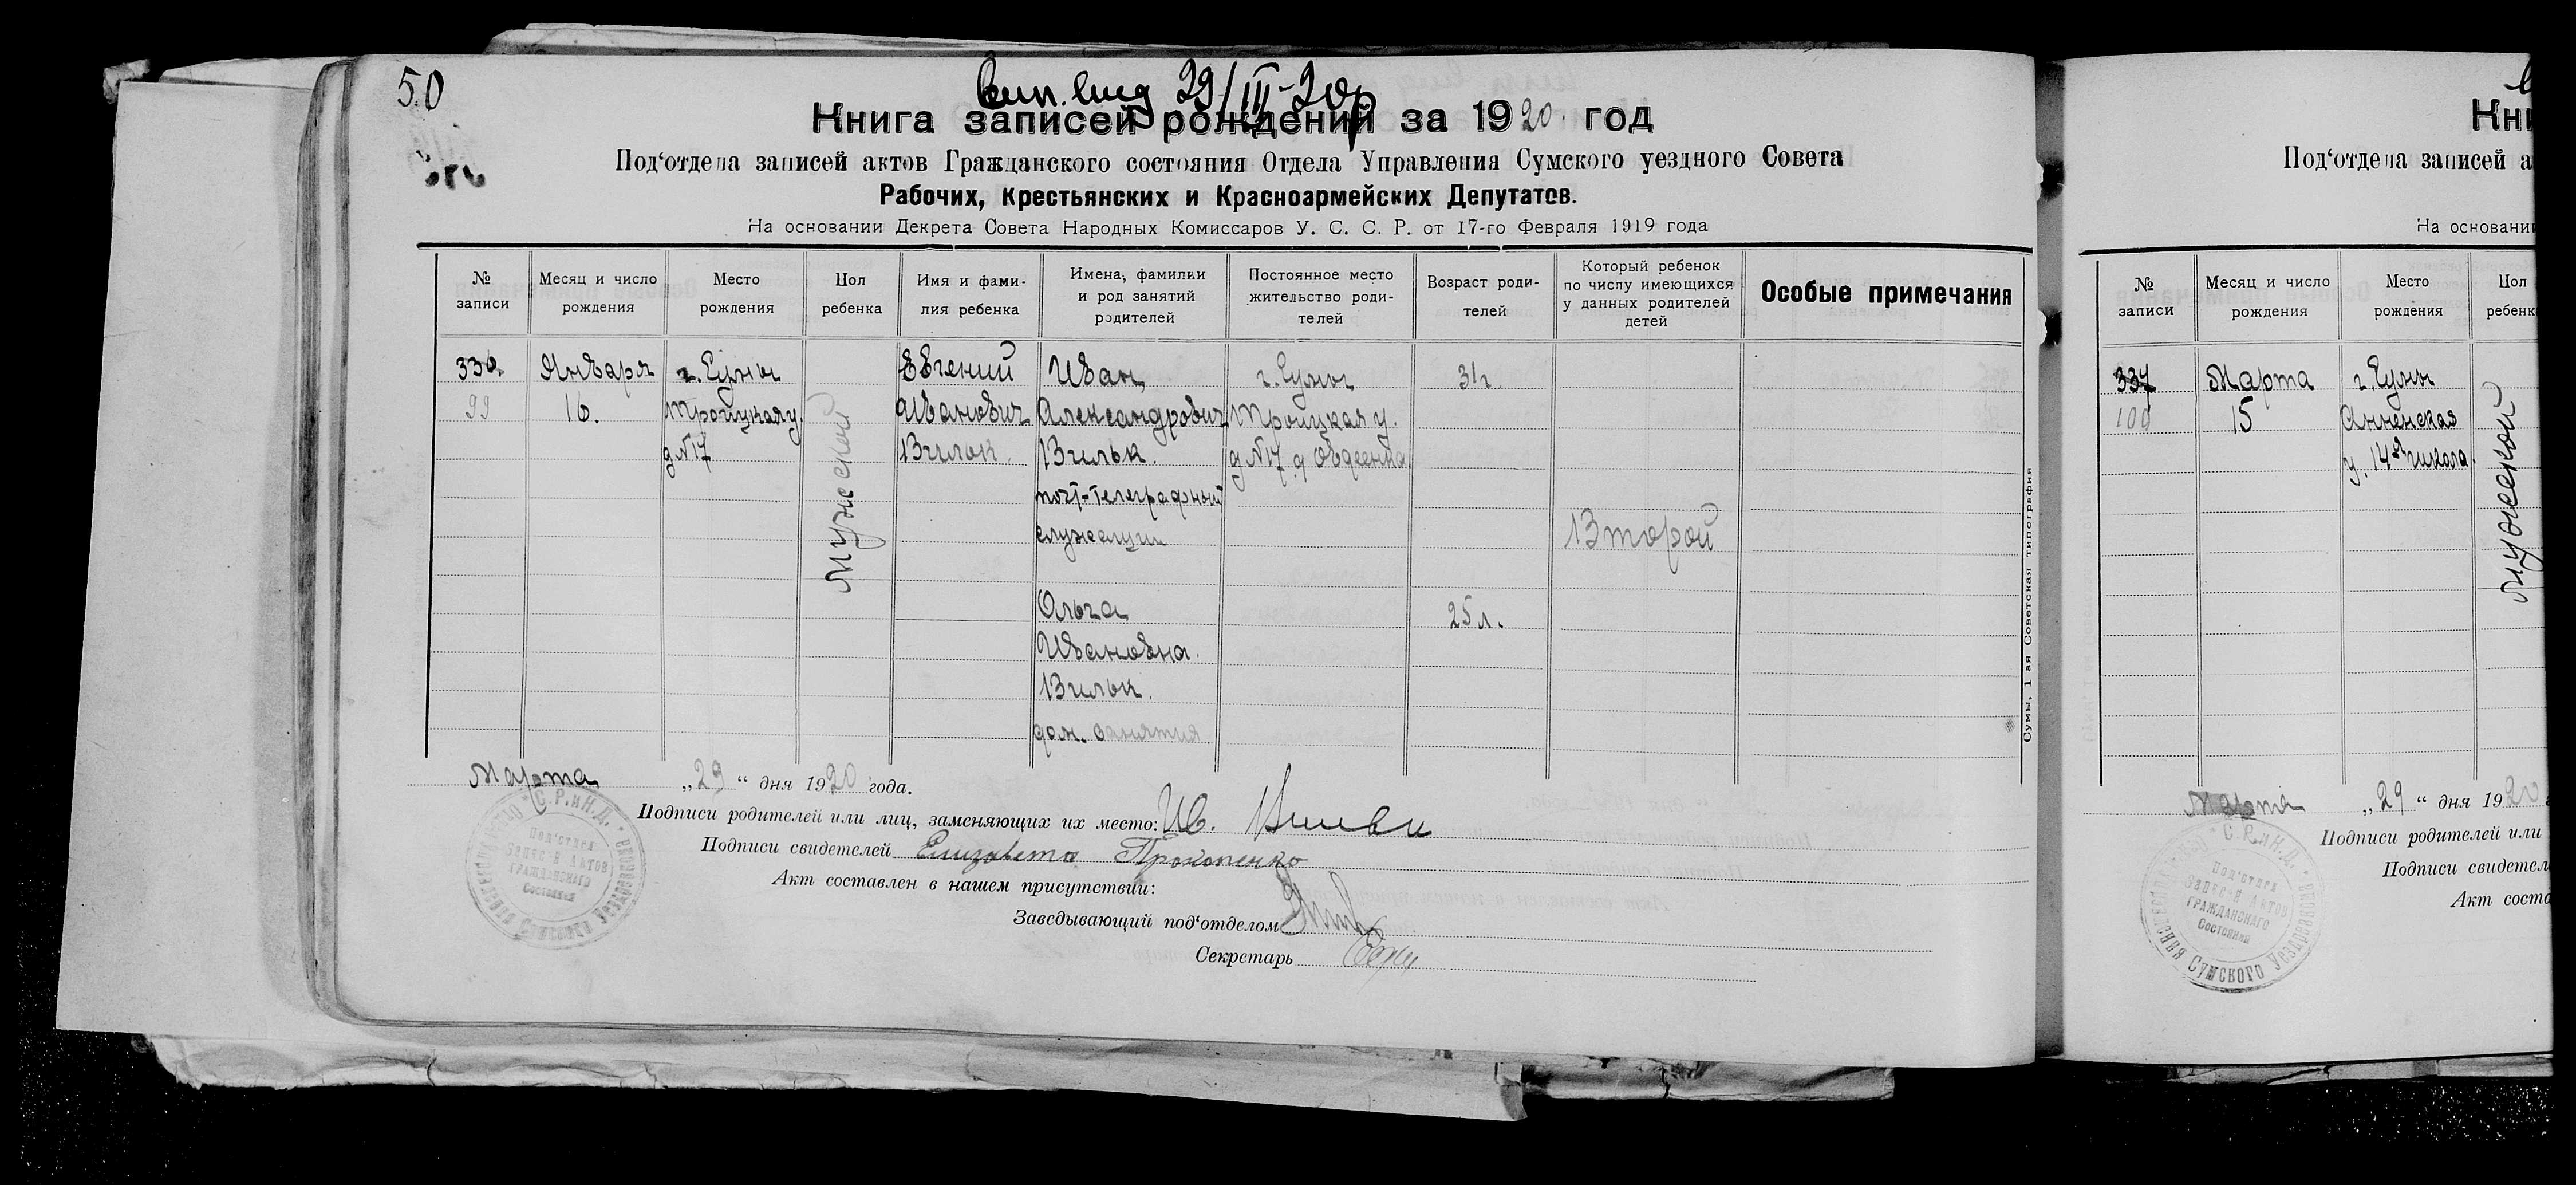 50
вып. вид 29/III-20г
Книга записей рождений за 1920 год
Под‘отдела записей актов Гражданского состояния Отдела Управления Сумского уездного Совета
Рабочих, Крестьянских и Красноармейских Депутатов.
На основании Декрета Совета Народных Комиссаров У. С. С. Р. от 17-го Февраля 1919 года
№ записи
Месяц и число рождения
Место рождения
Пол ребенка
Имя и фами-
лия ребенка
Имена, фамилии
и род занятий
родителей
Постоянное место
жительство роди-
телей
Возраст роди-
телей
Который ребенок
по числу имеющихся
у данных родителей
детей
Особые примечания
336
99
Января
16.
г. Сумы
Троицкая у.
д №17
Мужской
Евгений
Иванович
Вильк.
Иван
Александрович
Вильк.
почт-телеграфный
служащий
Ольга
Ивановна
Вильк.
дом. занятия
г. Сумы
Троицкая у.
д №17 д Овдеенка
31г.
25л.
Второй
Марта „29“ дня 1920 года.
Подписи родителей или лиц, заменяющих их место: Ив. Вильк
Подписи свидетелей Елизавета Прокопенко
Акт составлен в нашем присутствии:
Заведывающий под‘отделом
Секретарь
С.Р.и К.Д.
Под‘отдел
Записей Актов
Гражданского
Состояния
Сумы, 1 ая Советская типография
Кни
Под‘отдела записей а
На основании
№ записи
Месяц и число рождения
Место рождения
Пол ребенк
337
100
Марта
15
г. Сумы
Анненская
у. 14я школа.
Мужской
Марта „29“ дня 1920
Подписи родителей или
Подписи свидетел
Акт соста
С.Р.и К.Д.
Под‘отдел
Записей Актов
Гражданского
Состояния
Сумского Уездн